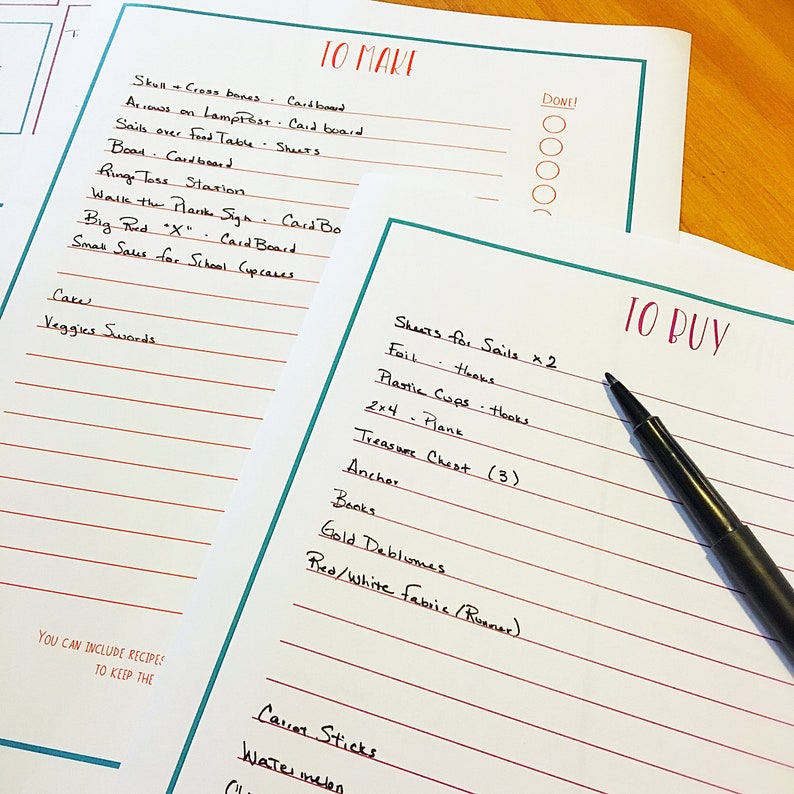 TO MAKE
DONE!
Skull + Cross bones - Cardboard
Arrows on LampPost - Card board
Sails over Food Table - Sheets
Boad - Cardboard
Ring Toss Station
Walk the Plank Sign - CardBo
Big Red "X" - CardBoard
Small Sales for School Cupcakes
Cake
Veggies Swords
YOU CAN INCLUDE RECIPES
TO KEEP THE
TO BUY
Sheets for Sails x2
Foil - Hooks
Plastic Cups - Hooks
2x4 - Plank
Treasure Chest (3)
Anchor
Books
Gold Deblumes
Red/White Fabric (Runner)
Carrot Sticks
Watermelon